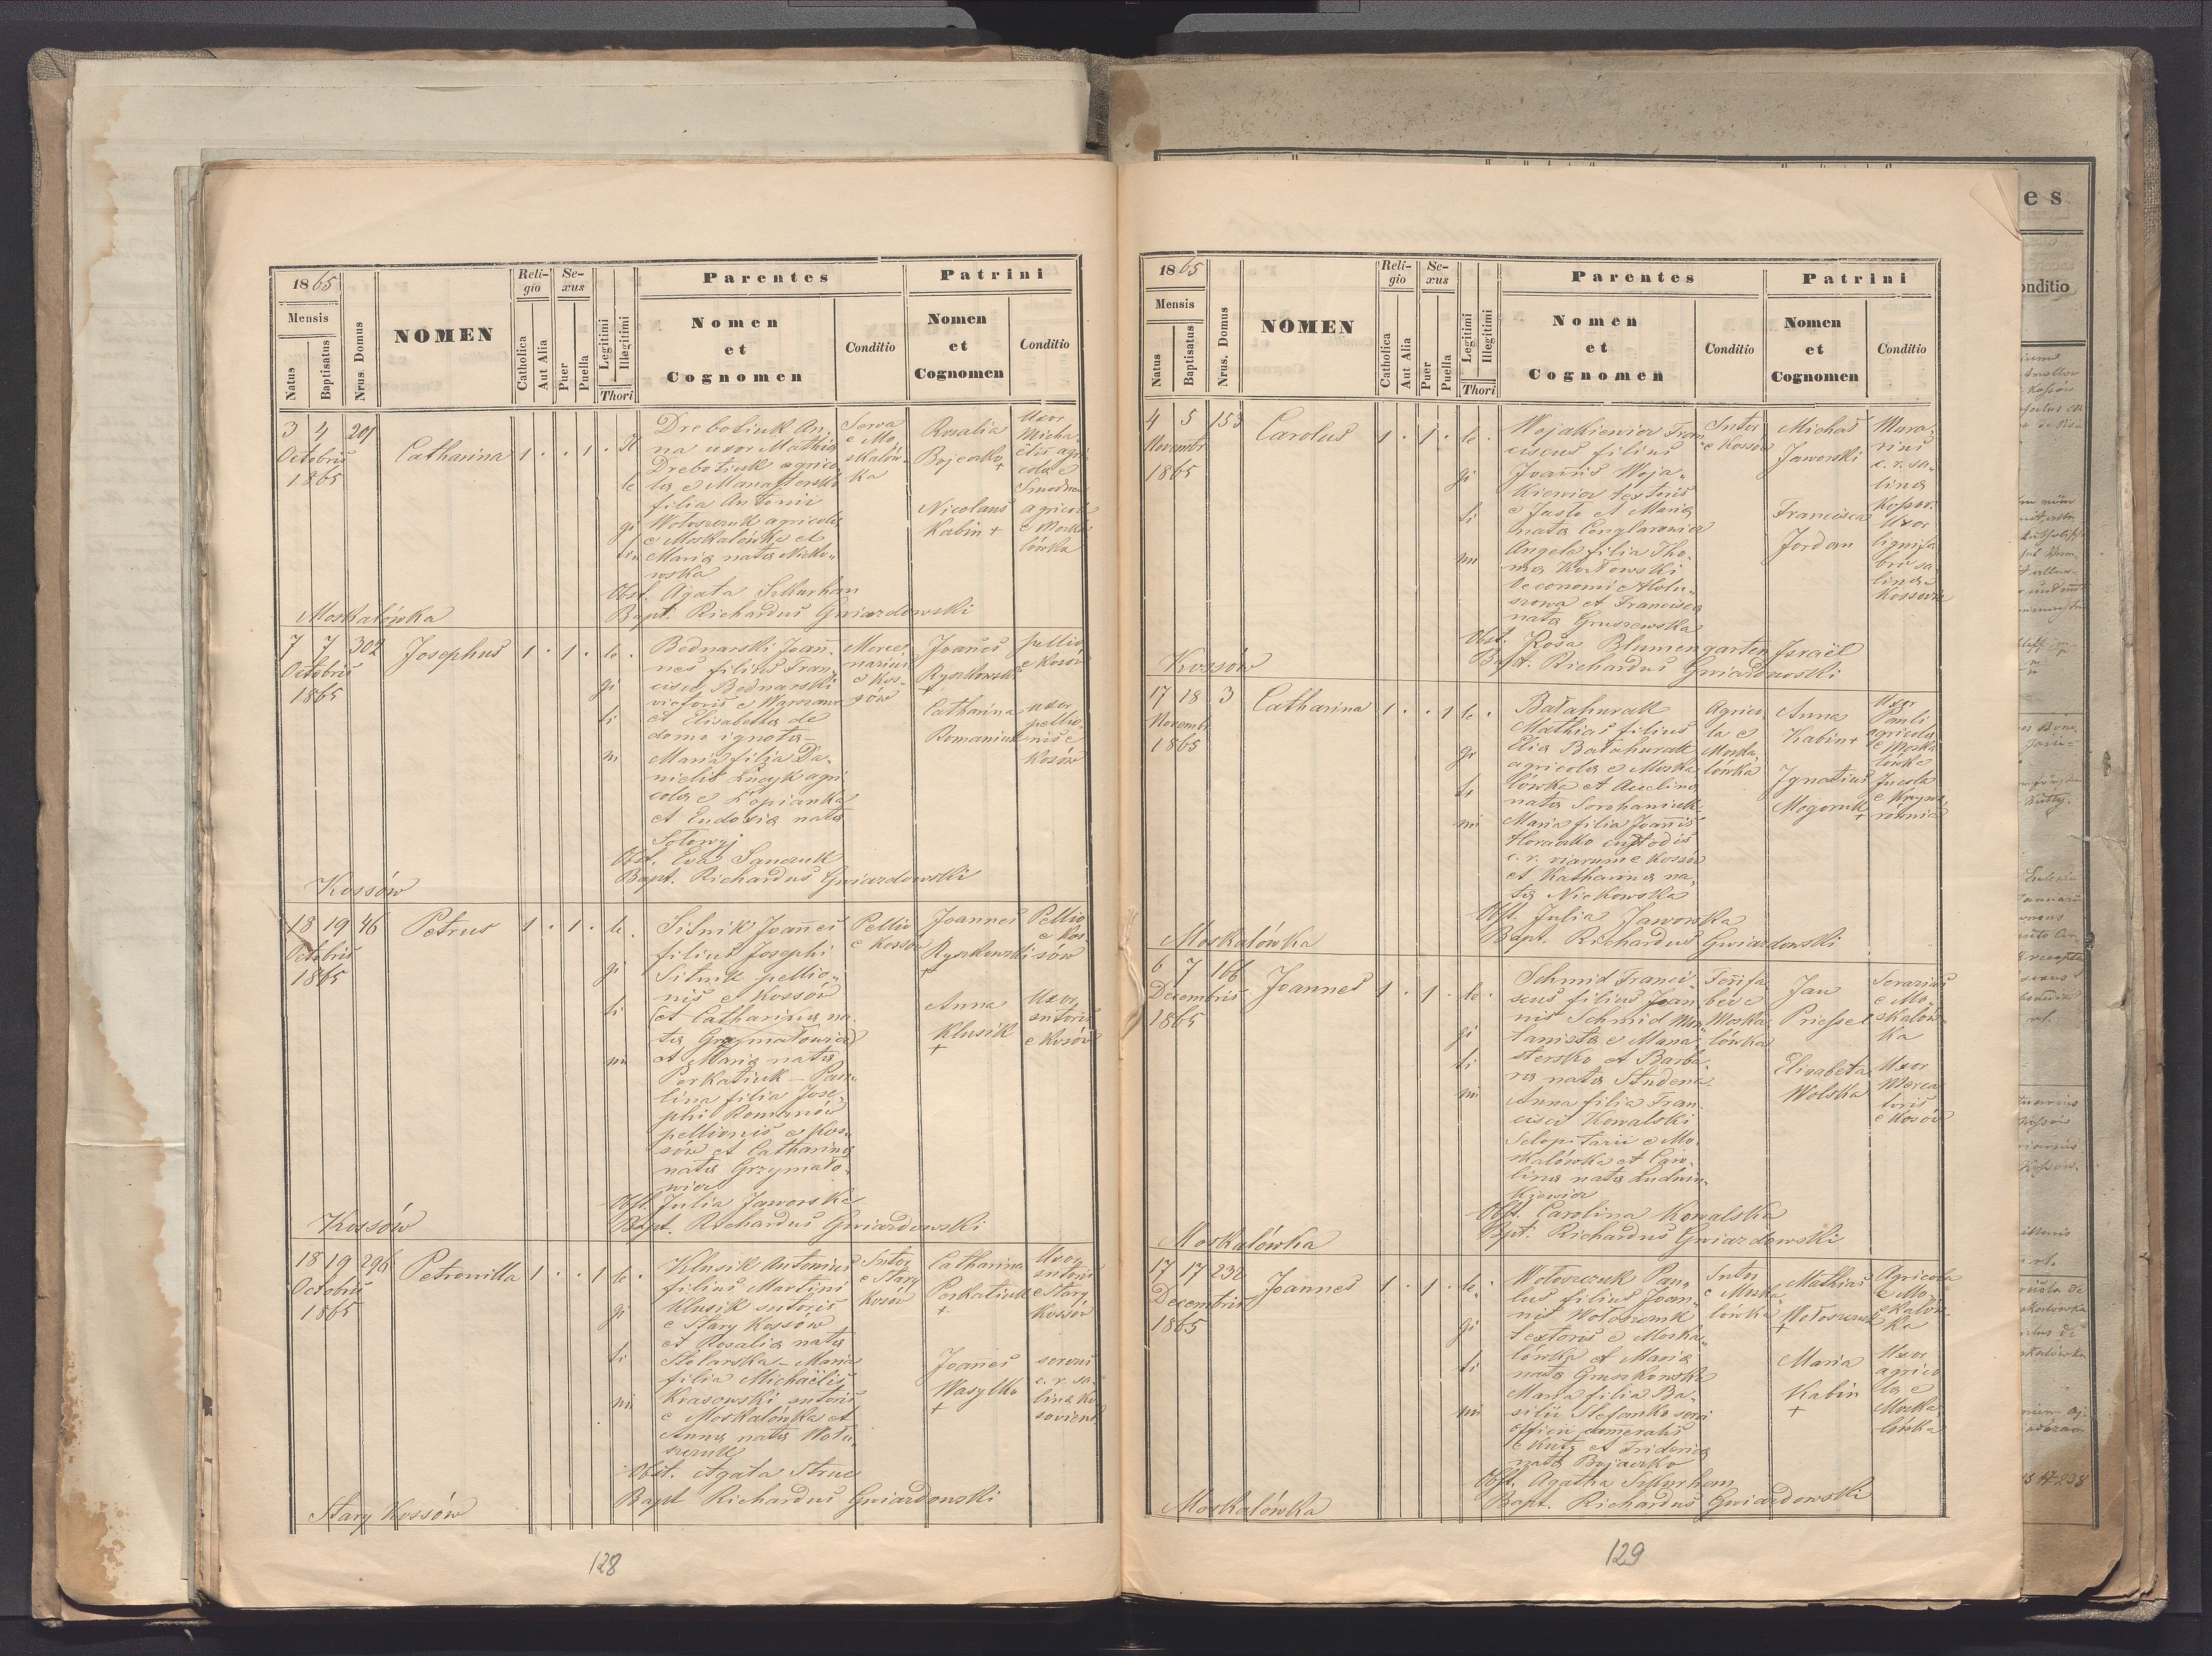 1865
Mensis
Natus
Baptisatus
Nrus. Domus
NOMEN
Reli-
gio
Catholica
Aut Alia
Se-
xus
Puer
Puella
Legitimi
Illegitimi
Thori
Parentes
Nomen
et
Cognomen
Conditio
Patrini
Nomen
et
Cognomen
Conditio
3 4 201
Octobris
1865
Catharina
1 . . 1 .
Il
le
gi
tim
Drebotiuk An,
na uxor Mathia
Drebotiuk agrico,
la e Manastersko
filia Antonii
Wołoszczuk agricola
e Moskalówka et
Maria nata Nicko-
wska
Serva
e Mo
skalów-
ka
Rosalia
Bojczko
+
Nicolaus
Kabin +
Uxor
Micha-
ëlis agri
cola e
Smodna
agricola
e Moska
lówka
Obst. Agata Szkurhan
Bapt. Richardus Gwiazdowski
Moskalówka
7 7 302
Octobris
1865
Josephus
1 . 1 . le .
gi
ti
m
Bednarski Joan̄-
nes filius Fran,
cisci Bednarski
victoris e Warszawa
et Elisabetha de
domo ignota –
Maria filia Da-
nielis Łucyk agri
cola e Łopianka
et Eudoxia nata
Sołowyj
Merce,
narius
e Kos-
sów
Joan̄es
Ryszkowski
+
Catharina
Romaniuk
pellio
e Kosów
uxor
pellio,
nis e
Kosów
Obst. Eva Sawczuk
Bapt. Richardus Gwiazdowski
Kossów
18 19 46
Octobris
1865
Petrus
1 . 1 . le .
gi
ti
mi
Sitnik Joan̄es
filius Josephi
Sitnik pellio-
nis e Kossów
et Catharina na
ta Grzymałowicz
et Maria nata
Perkatiuk – Pau-
lina filia Jose-
phi Romanów
pellionis e Kos-
sów et Catharina
nata Grzymało-
wicz
Pellio
e Kossów
Joannes
Ryszkowski
+
Anna
Klusik
+
Pellio
e Kos
sów
Uxor
sutoris
e Kosów
Obst. Julia Jaworska
Bapt. Richardus Gwiazdowski
Kossów
18 19 296
Octobris
1865
Petronilla
1 . . 1 le .
gi
ti
mi
Klusik Antonius
filius Martini
Klusik sutoris
e Stary Kossów
et Rosalia nata
Stolarska – Maria
filia Michaëlis
Krasowski sutoris
e Moskalówka et
Anna nata Woło-
szczuk
Sutor
e Stary
Kosów
Catharina
Perkatiuk
+
Joan̄es
Wasylko
+
Uxor
sutoris
e Stary
Kossów
servus
c. r. sa-
lina Ko
soviens
Obst. Agata Struc
Bapt Richardus Gwiazdowski
Stary Kossów
128
1865
Mensis
Natus
Baptisatus
Nrus. Domus
NOMEN
Reli-
gio
Catholica
Aut Alia
Se-
xus
Puer
Puella
Legitimi
Illegitimi
Thori
Parentes
Nomen
et
Cognomen
Conditio
Patrini
Nomen
et
Cognomen
Conditio
4 5 153
Novembr
1865
Carolus
1 . 1 . le .
gi
ti
mi
Wojakiewicz Fran
ciscus filius
Joan̄is Woja-
kiewicz textoris
e Jasło et Maria
nata Cenglarowicz
Angela filia Tho-
ma Kozłowski
Oeconomi e Holo-
szowa et Francisca
nata Gruszewska
Sutor
e Kossów
Michał
Jaworski
Francisca
Jordan
Mura-
rius
c. r. sa-
lina
Kossov.
Uxor
lignifa
bri sa
lina
Kossovia
Obst. Rosa Blumengarten Israël
Bapt. Richardus Gwiazdowski
Kossów
17 18 3
Novembr
1865
Catharina
1 . . 1 le .
gi
ti
mi
Bałahurak
Mathias filius
Elia Bałahurak
agricola e Moska
lówka et Aucelina
nata Sorohaniuk
Maria filia Joan̄is
Horaczko custodis
c. r. viarum e Kossów
et Katharina na,
ta Nickowska
Agrico
la e
Moska
lówka
Anna
Kabin +
Ignatius
Megoruk
+
Uxor
Pauli
agricola
e Moska
lówka
Incola
e Krywo,
równia
Obst. Julia Jaworska
Bapt. Richardus Gwiazdowski
Moskalówka
6 7 166
Decembris
1865
Joannes
1 . 1 . le .
gi
ti
mi
Schmid Franci-
scus filius Joan
nis Schmid Mon-
tanista e Mana-
stersko et Barba
ra nata Studena
Anna filia Fran-
cisci Kowalski
Sclopitarii e Mo-
skalówka et Caro-
lina nata Ludwin-
kiewicz
Ferrifa
ber e
Moska
lówka
Jan
Priessel
Elisabeta
Wolska
Serarius
e Mo-
skalów-
ka
Uxor
Merca
toris
e Kosów
Obst. Carolina Kowalska
Bpt. Richardus Gwiazdowski
Moskalówka
17 17 232
Decembris
1865
Joannes
1 . 1 . le .
gi
ti
mi
Wołoszczuk Pau-
lus filius Joan-
nis Wołoszczuk
textoris e Moska-
lówka et Maria
nata Gruszkowska
Maria filia Ba-
silii Stefanko servi
officii cameralis
e Kuty et Friderica
nata Bojaczko
Sutor
e Moska
lówka
Mathias
Wołoszczuk
+
Maria
Kabin
+
Agricola
e Mo-
skalów
ka
Uxor
agrico
la e
Moska
lówka
Obst. Agatha Szkurhan
Bapt. Richardus Gwiazdowski
Moskalówka
129
es
onditio